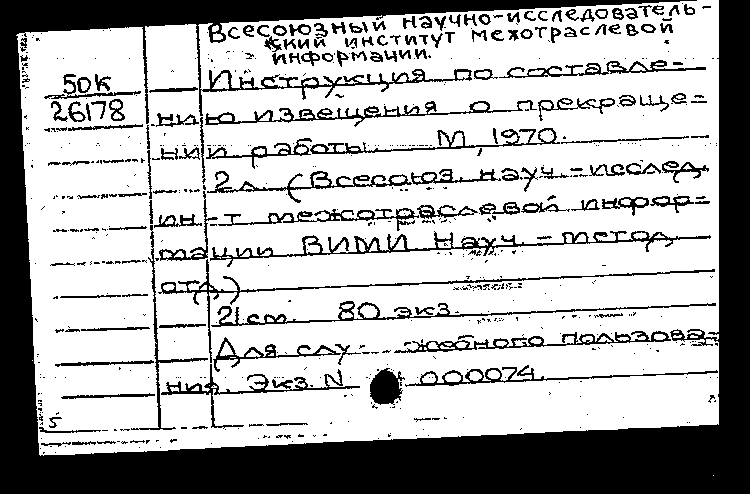 Всесоюзный научно-исследователь-
ский институт межотраслевой
информации.
50К
26178
Инструкция по составле-
нию извещения о прекраще-
нии работы. М, 1970.
2л. (Всесоюз. науч.-исслед.
ин-т межотраслевой инфор-
мации ВИМИ Науч.-метод.
отд.)
21 см. 80 экз.
Для слу- жебного пользова-
ния. Экз. N 000074.
5